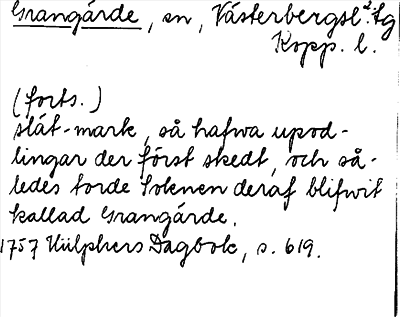 Grangärde, sn, Västerbergsl:s fg
Kopp. l.
(forts.)
slät-mark, så hafwa upod-
lingar der först skedt, och så-
ledes torde Soknen deraf blifwit
kallad Grangärde.
1757 Hülphers Dagbok, s. 619.